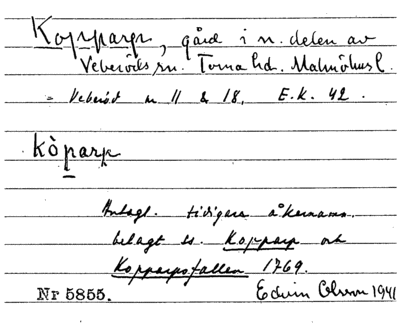 Kopparp, gård i n. delen av
Veberöds sn. Torna hd. Malmöhus l.
= Veberöd nr 11 & 18, E.K. 42.
kòparp
Antagl. tidigare åkernamn.
belagt ss. Kopparp och
Kopparpsfallen 1769.
Nr 5855. Edvin Olsson 1941